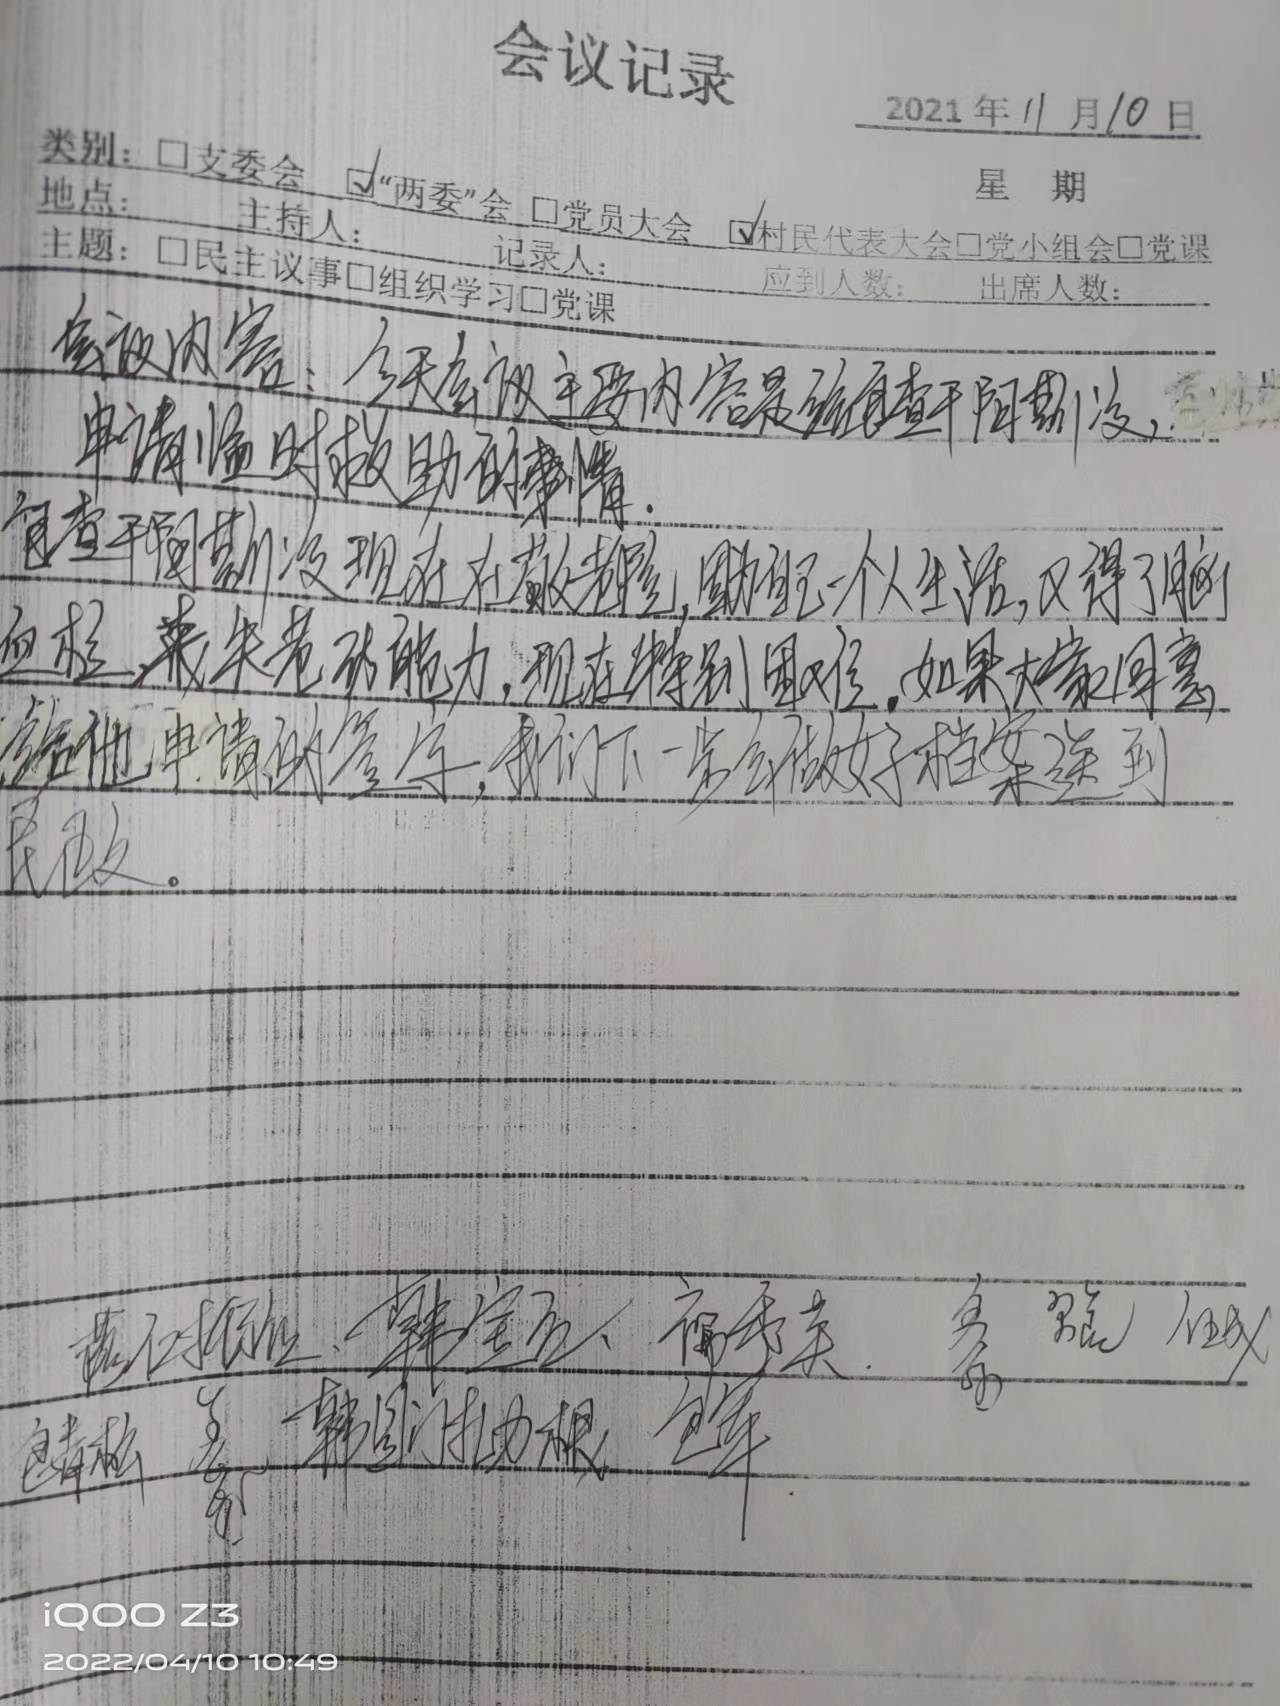 会议记录
2021 年 11 月 10 日
类别：□支委会 ☑“两委”会 □党员大会 ☑村民代表大会□党小组会□党课
星 期
地点： 主持人： 记录人： 应到人数： 出席人数：
主题：□民主议事□组织学习□党课
会议内容：今天会议主要内容是给包查干阿斯冷，
申请临时救助的事情．
包查干阿斯冷现在在敬老院，因为自己一个人生活，又得了脑
血栓，丧失劳动能力，现在特别困难．如果大家同意
给他申请的签字，我们下一步会做好档案送到
民政。
韩宝 秀英
包 韩 根 包军
iQOO Z3
2022/04/10 10:49